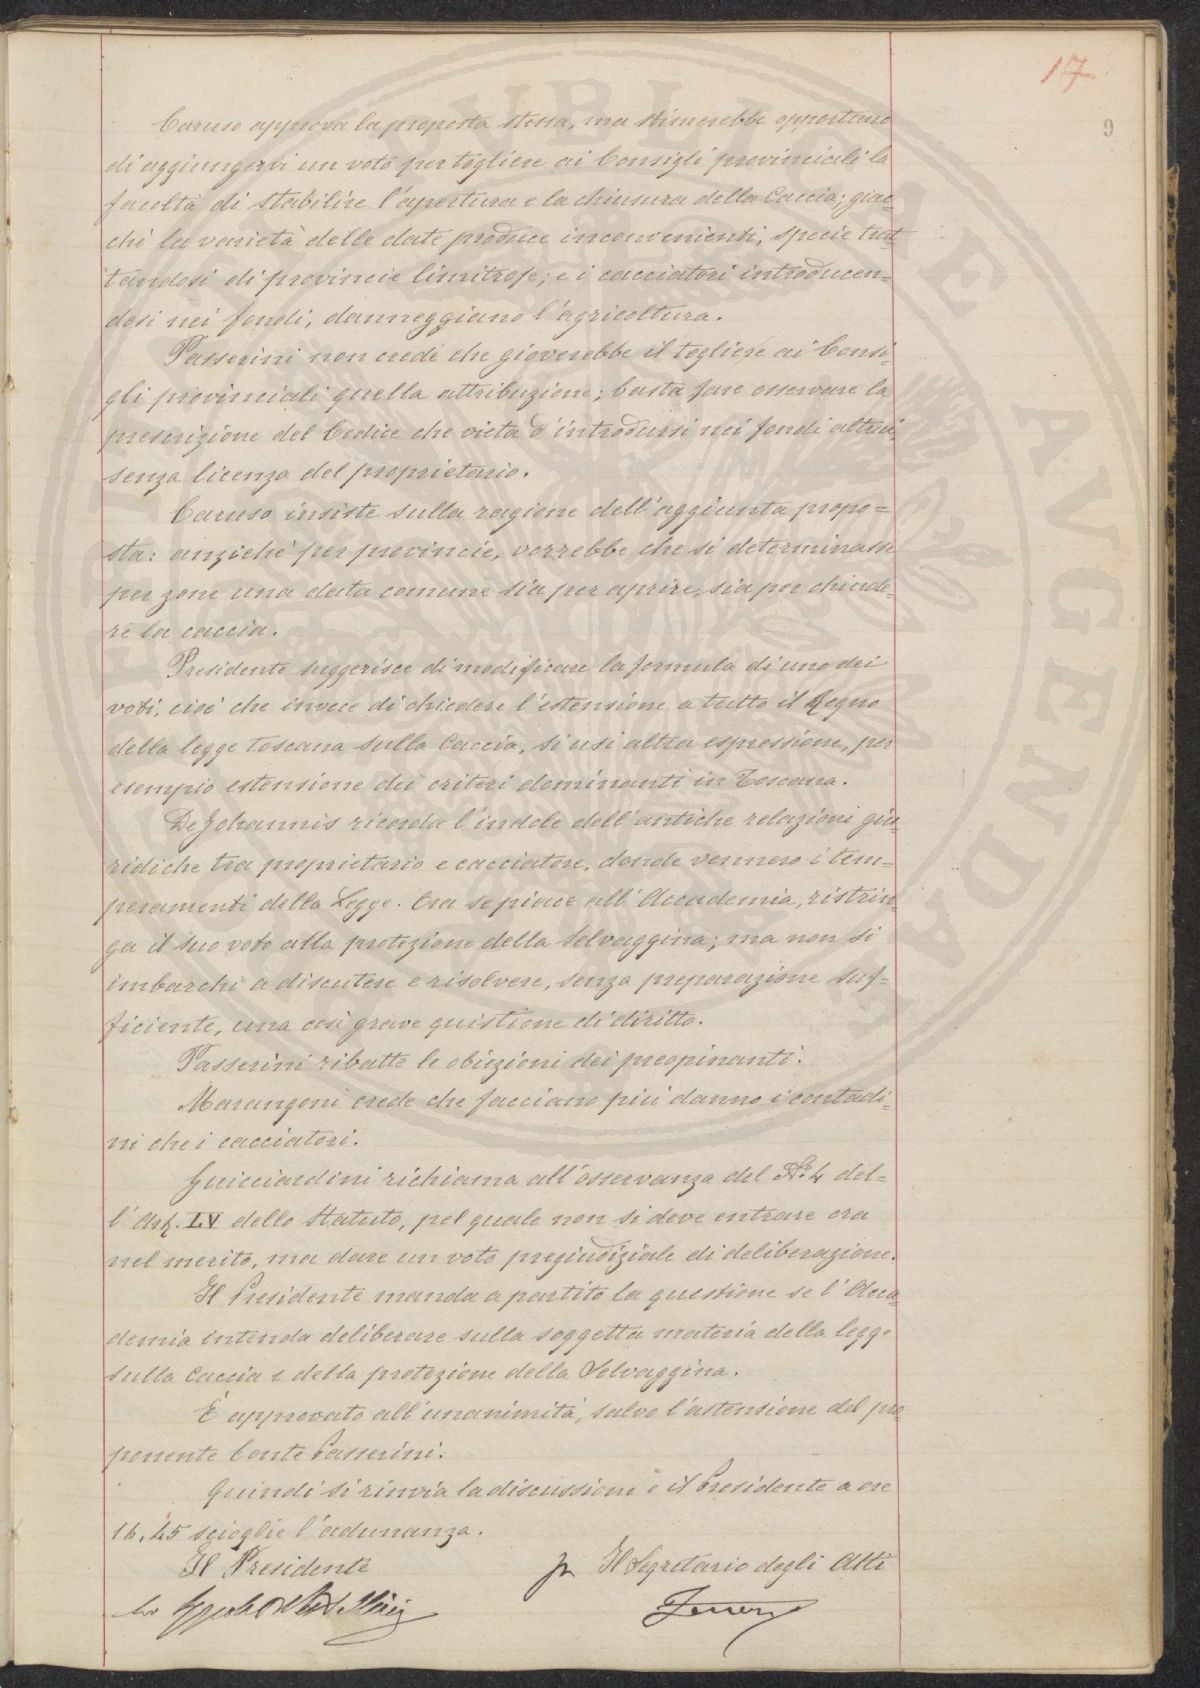 17
9
Caruso approva la proposta stessa, ma stimerebbe opportuno
di aggiungervi un voto per togliere ai Consigli provinciali la
facoltà di stabilire l'apertura e la chiusura della Caccia; giac-
chè la varietà delle date produce inconvenienti, specie trat-
tandosi di provincie limitrofe; e i cacciatori introducen=
dosi nei fondi, danneggiano l'agricoltura.
Passerini non crede che gioverebbe il togliere ai Consi-
gli provinciali quella attribuzione; basta fare osservare la
prescrizione del Codice che vieta d'introdursi nei fondi altrui
senza licenza del proprietario.
Caruso insiste sulla ragione dell'aggiunta propo=
sta: anzichè per provincie, vorrebbe che si determinasse
per zone una data comune sia per aprire, sia per chiude-
re la caccia.
Presidente suggerisce di modificare la formula di uno dei
voti, cioè che invece di chiedere l'estensione a tutto il Regno
della legge Toscana sulla Caccia, si usi altra espressione, per
esempio estensione dei criteri dominanti in Toscana.
De Johannis ricorda l'indole dell'antiche relazioni giu-
ridiche tra proprietario e cacciatore, donde vennero i tem=
peramenti della Legge. Ora se piace all'Accademia, ristrin-
ga il suo voto alla protezione della Selvaggina; ma non si
imbarchi a discutere e risolvere, senza preparazione suf-
ficiente, una così grave quistione di diritto.
Passerini ribatte le obiezioni dei preopinanti.
Marangoni crede che facciano più danno i contadi-
ni che i cacciatori.
Guicciardini richiama all'osservanza del N.º 4 del=
l'Art. LV dello Statuto, pel quale non si deve entrare ora
nel merito, ma dare un voto pregiudiziale di deliberazione.
Il Presidente manda a partito la questione se l'Acca-
demia intenda deliberare sulla soggetta materia della legge
sulla Caccia e della protezione della Selvaggina.
È approvato all'unanimità, salvo l'astensione del pro-
ponente Conte Passerini.
Quindi si rinvia la discussione e il Presidente a ore
16,45 scioglie l'adunanza.
Il Presidente
p Il Segretario degli Atti
PUBLICAE AVGENDAE